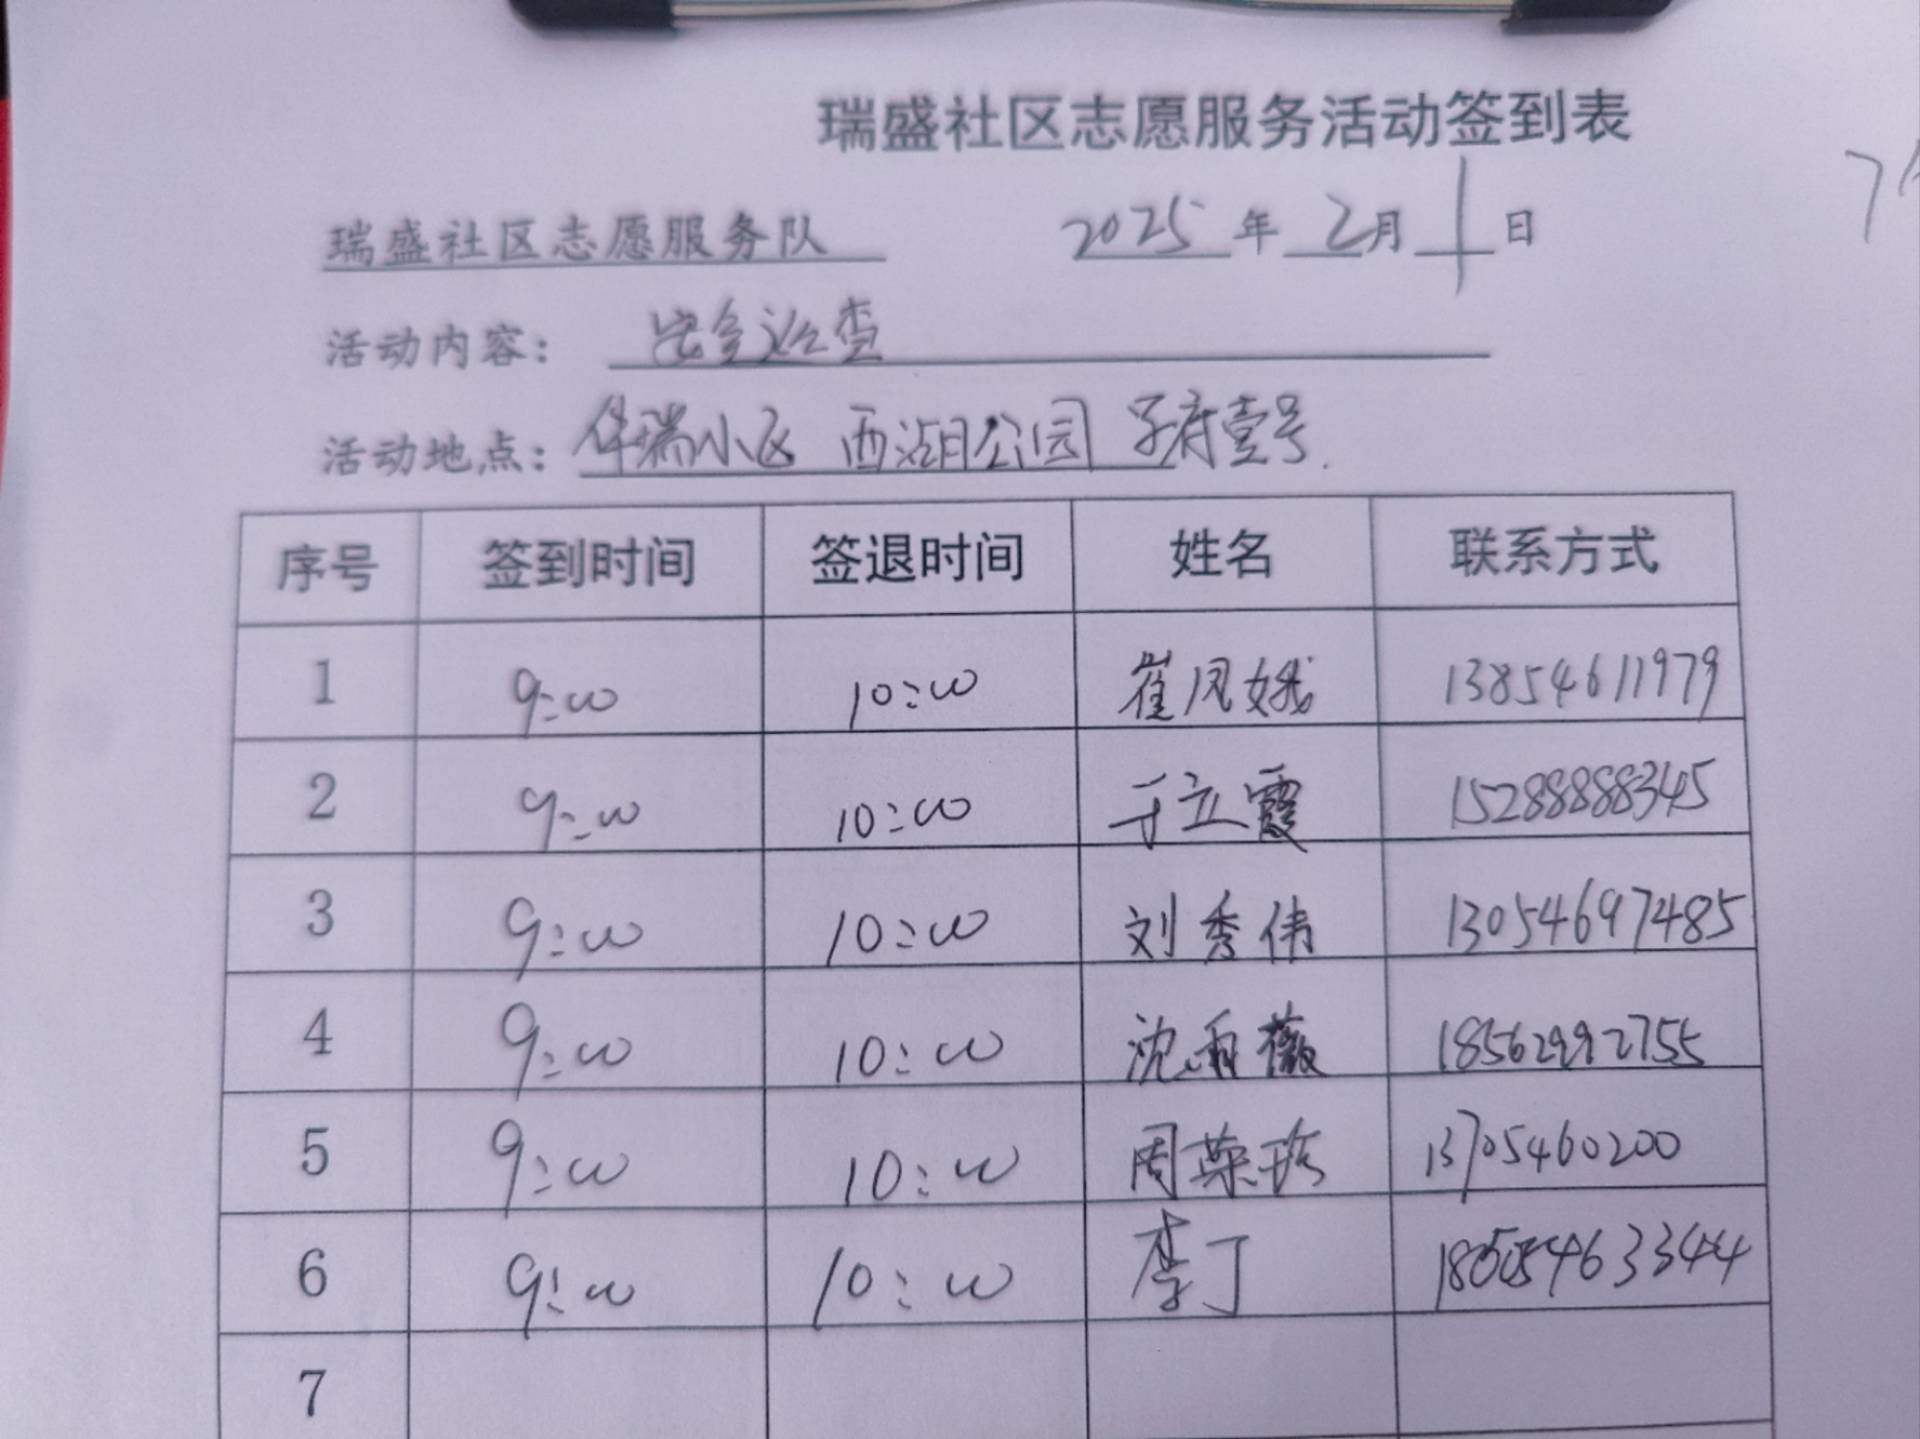 瑞盛社区志愿服务活动签到表
瑞盛社区志愿服务队 2025年2月1日
活动内容: 安全巡查
活动地点: 华瑞小区 西湖公园 学府壹号.
序号 签到时间 签退时间 姓名 联系方式
1 9:00 10:00 崔凤娥 13854611979
2 9:00 10:00 于立霞 15288888345
3 9:00 10:00 刘秀伟 13054697485
4 9:00 10:00 沈雨薇 18562992755
5 9:00 10:00 周荣珍 13705460200
6 9:00 10:00 李丁
7